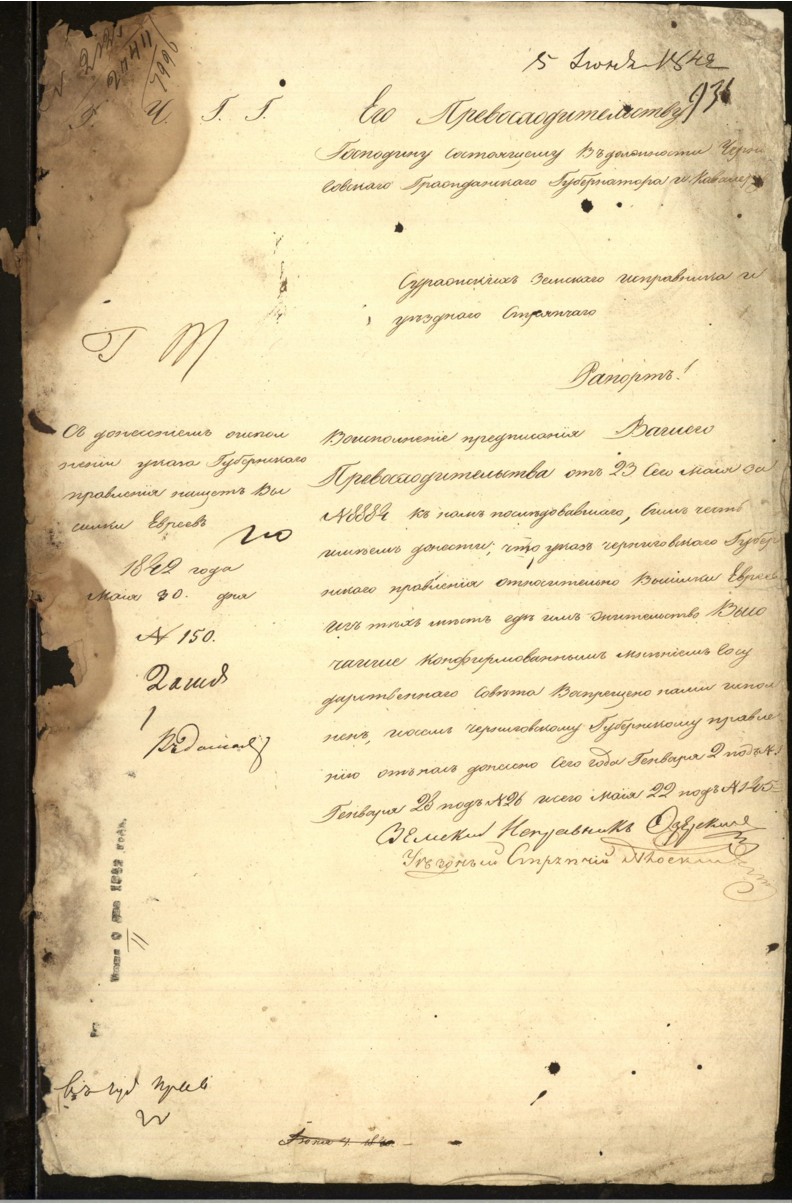 5 Июня 1842
931
Ч. Г. Г.
Его Превосходительству
Господину состоящему Вдолжности Черни
говского Гражданского Губернатора и Кавалеру
Суражскихъ Земского исправника и
уѣзднаго Стряпчаго
Рапортъ!
Съ донесеніемъ оиспол
неніи указа Губернского
правленія насчетъ Вы
силки Евреевъ
1842 года
Маія 30. дня
№ 150.
Воисполненіе предписанія Вашего
Превосходительства отъ 23 Сего Маія за
№ 8884 къ намъ послѣдовавшаго, симъ честь
имѣемъ донести, что указъ черниговского Губер
нского правленія относительно Высилки Евреевъ
изъ тѣхъ мѣстъ гдѣ имъ жительство Высо
чайше Конфирмованнымъ мнѣніемъ Госу
дарственнаго Совѣта Воспрещено нами испол
ненъ, очомъ черниговскому Губернскому правле
нію отънасъ донесено Сего года Генваря 2 подъ №1
Генваря 28 подъ №26 и сего Маія 22 подъ №
Земский Исправникъ
Уѣздный Стряпчий
1842 года.
въ губ прав